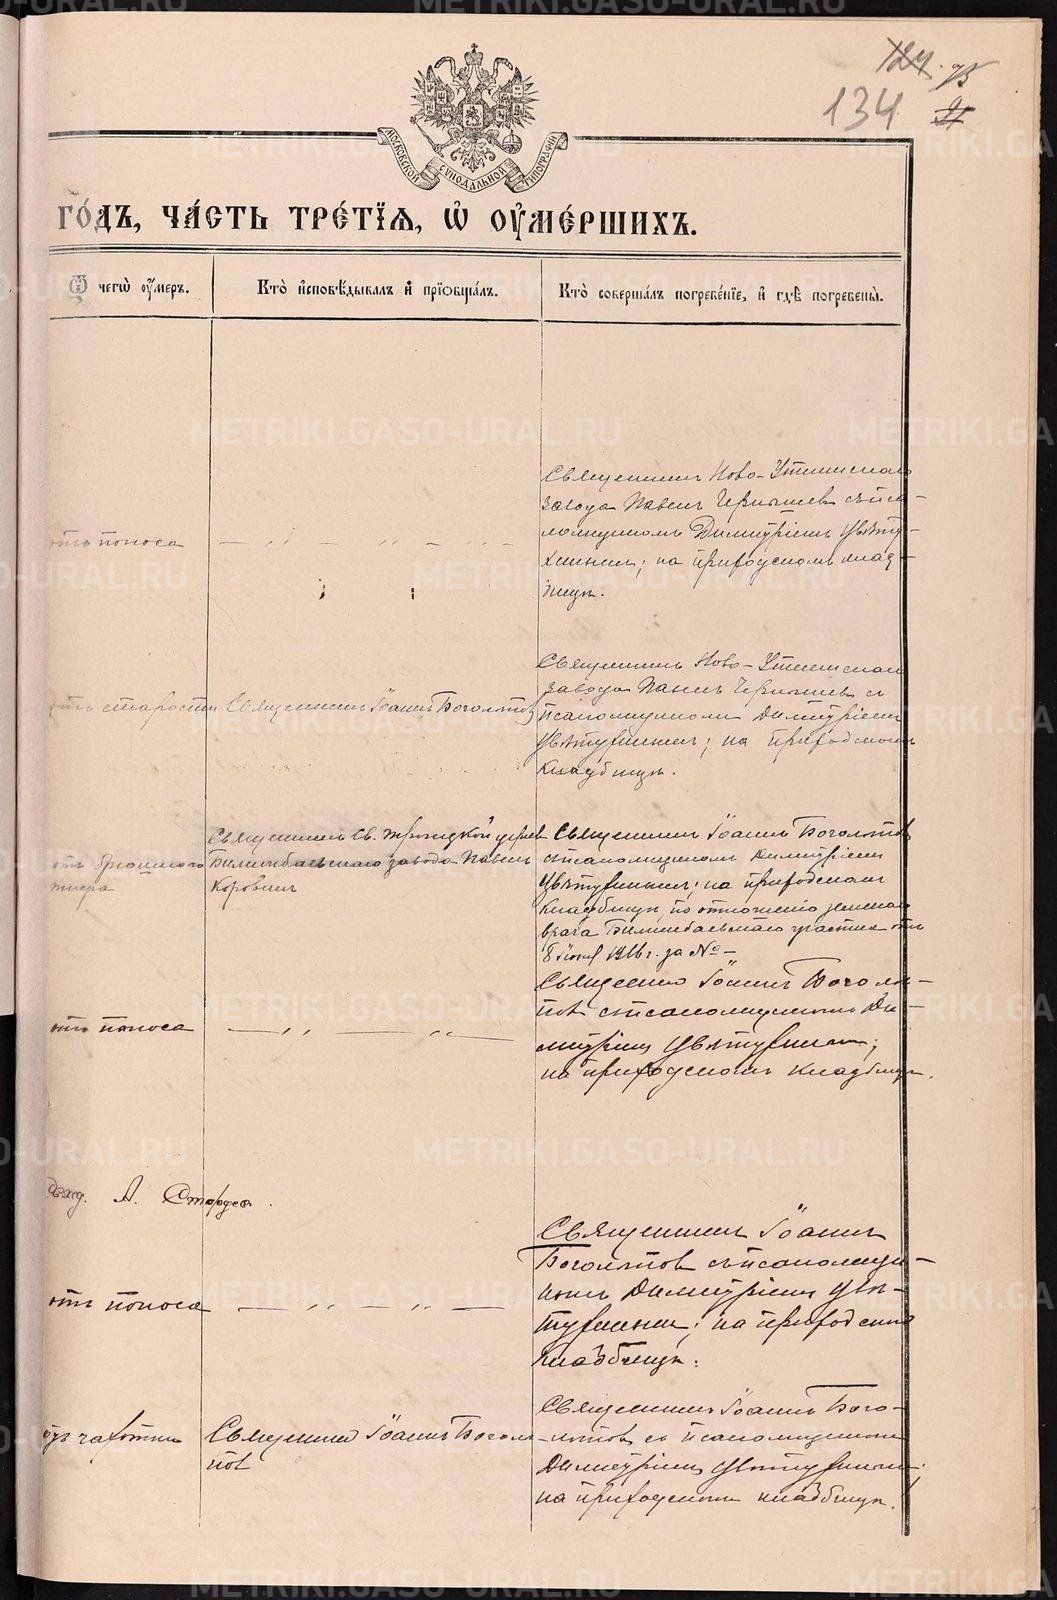 134
МОСКОВСКОЙ СѴНОДАЛЬНОЙ ТИПОГРАФІИ
го́дъ, ча́сть тре́тїѧ, ѡ҆ оу҆ме́ршихъ.
Ѿ чегѡ̀ оу҆́меръ.
Кто̀ и҆сповѣ́дывалъ и҆ прїѡбща́лъ.
Кто̀ соверша́лъ погребе́нїе, и҆ гдѣ̀ погребены̀.
отъ поноса
Священникъ Ново-Уткинскаго
завода Павелъ Чернышев съ пса-
ломщикомъ Димитріемъ Цвѣту-
хинымъ; на приходскомъ клад-
бищѣ.
отъ старости
Священникъ Іоаннъ Боголѣпов
Священникъ Ново-Уткинскаго
завода Павелъ Чернышев с
псаломщикомъ Димитріемъ
Цвѣтухинымъ; на приходскомъ
кладбищѣ.
отъ брюшного
тифа
Священникъ Св. Троицкой церкви
Билимбаевскаго завода Павелъ
Коровинъ
Священникъ Іоаннъ Боголѣпов
съ псаломщикомъ Димитріемъ
Цвѣтухинымъ; на приходскомъ
кладбищѣ, по отношенію земскаго
врача Билимбаевскаго участка отъ
8 1916 г. за № —
отъ поноса
Священник Іоаннъ Боголѣ-
пов съ псаломщикомъ Ди-
митріем Цвѣтухиным;
на приходскомъ кладбищѣ.
А.
отъ поноса
Священникъ Іоаннъ
Боголѣпов съ псаломщи-
комъ Димитріемъ Цвѣ-
тухиным; на приходском
кладбищѣ.
от чахотки
Священник Іоаннъ Боголѣ-
пов
Священникъ Іоаннъ Бого-
лѣпов съ псаломщиком
Димитріем Цвѣтухиным;
на приходском кладбищѣ.
METRIKI.GASO-URAL.RU